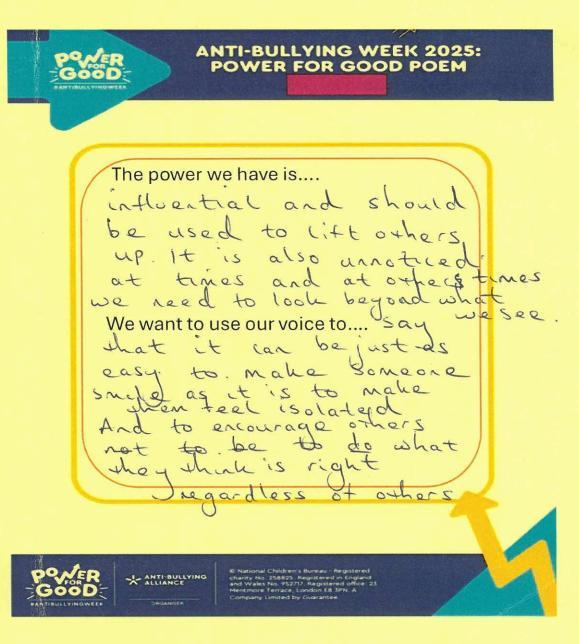 POWER
FOR
GOOD
#ANTIBULLYINGWEEK
ANTI-BULLYING WEEK 2025:
POWER FOR GOOD POEM
The power we have is....
influential and should
be used to lift others
up. It is also unnoticed
at times and at others times
we need to look beyond what
we see.
We want to use our voice to.... say
that it can be just as
easy to make someone
smile as it is to make
them feel isolated
And to encourage others
not to be to do what
they think is right
regardless of others
POWER
FOR
GOOD
#ANTIBULLYINGWEEK
ANTI-BULLYING
ALLIANCE
ORGANISER
© National Children's Bureau - Registered
charity No. 258825. Registered in England
and Wales No. 952717. Registered office: 23
Mentmore Terrace, London E8 3PN. A
Company Limited by Guarantee.